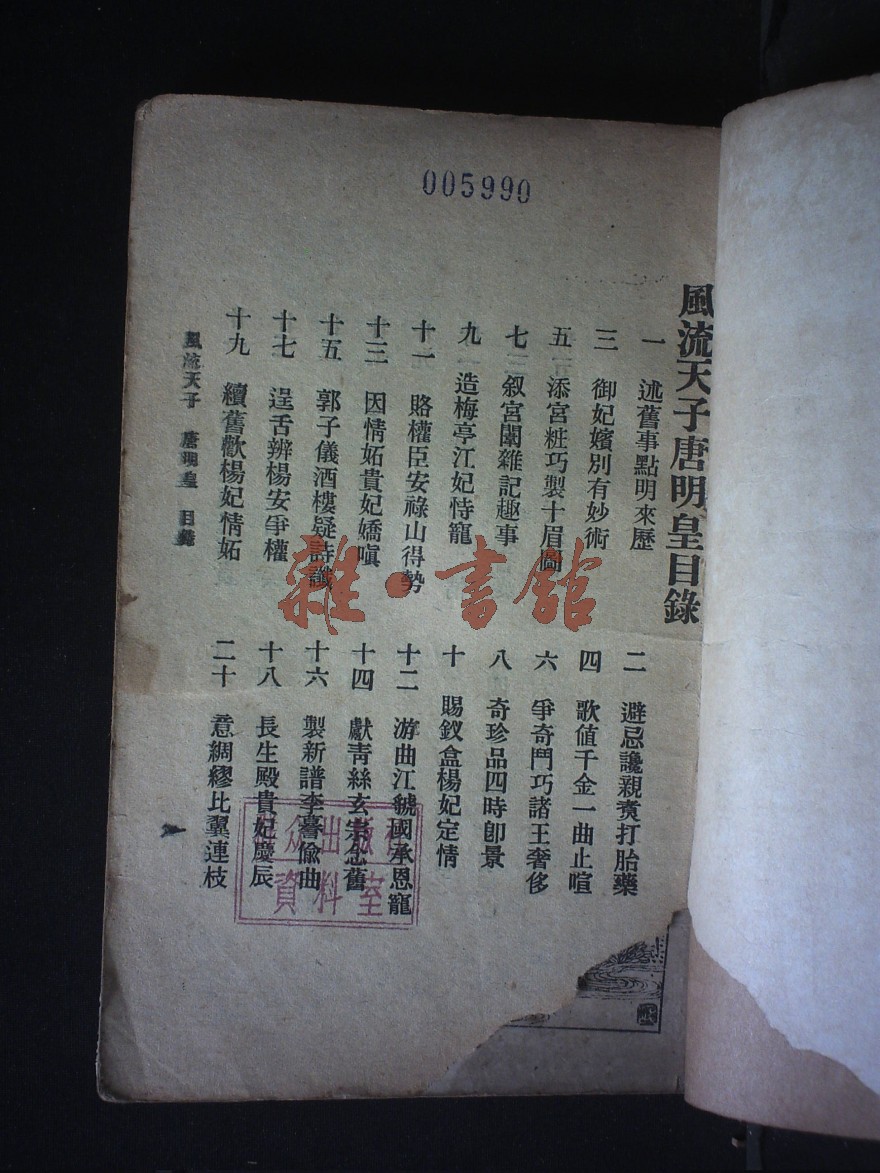 005990
風流天子唐明皇目錄
一　述舊事點明來歷
二　避忌讒親煑打胎藥
三　御妃嬪別有妙術
四　歌值千金一曲止喧
五　添宮粧巧製十眉圖
六　爭奇鬥巧諸王奢侈
七　叙宮闈雜記趣事
八　奇珍品四時卽景
九　造梅亭江妃恃寵
十　賜釵盒楊妃定情
十一　賂權臣安祿山得勢
十二　游曲江虢國承恩寵
十三　因情妬貴妃嬌嗔
十四　獻青絲玄宗念舊
十五　郭子儀酒樓疑詩讖
十六　製新譜李謩偸曲
十七　逞舌辨楊安爭權
十八　長生殿貴妃慶辰
十九　續舊歡楊妃情妬
二十　意綢繆比翼連枝
風流天子　唐明皇　目錄
雜·書館
众出版社
資料室